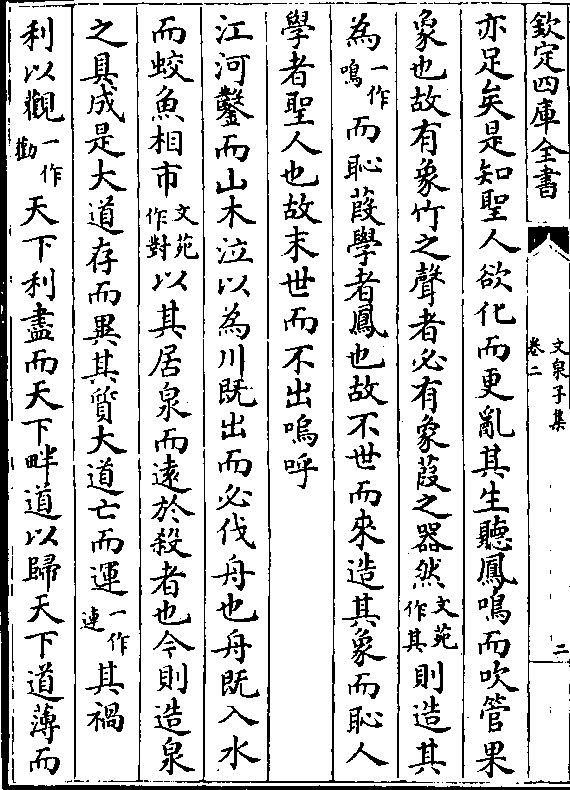 欽定四庫全書
文泉子集
卷二
二
亦足矣是知聖人欲化而更亂其生聽鳳鳴而吹管果
象也故有象竹之聲者必有象葭之器然文苑作其則造其
為一作鳴而恥葭學者鳳也故不世而來造其象而恥人
學者聖人也故末世而不出嗚呼
江河鑿而山木泣以為川既出而必伐舟也舟既入水
而蛟魚相市文苑作對以其居泉而遠於殺者也今則造泉
之具成是大道存而異其質大道亡而運一作連其禍
利以觀一作勸天下利盡而天下畔道以歸天下道薄而